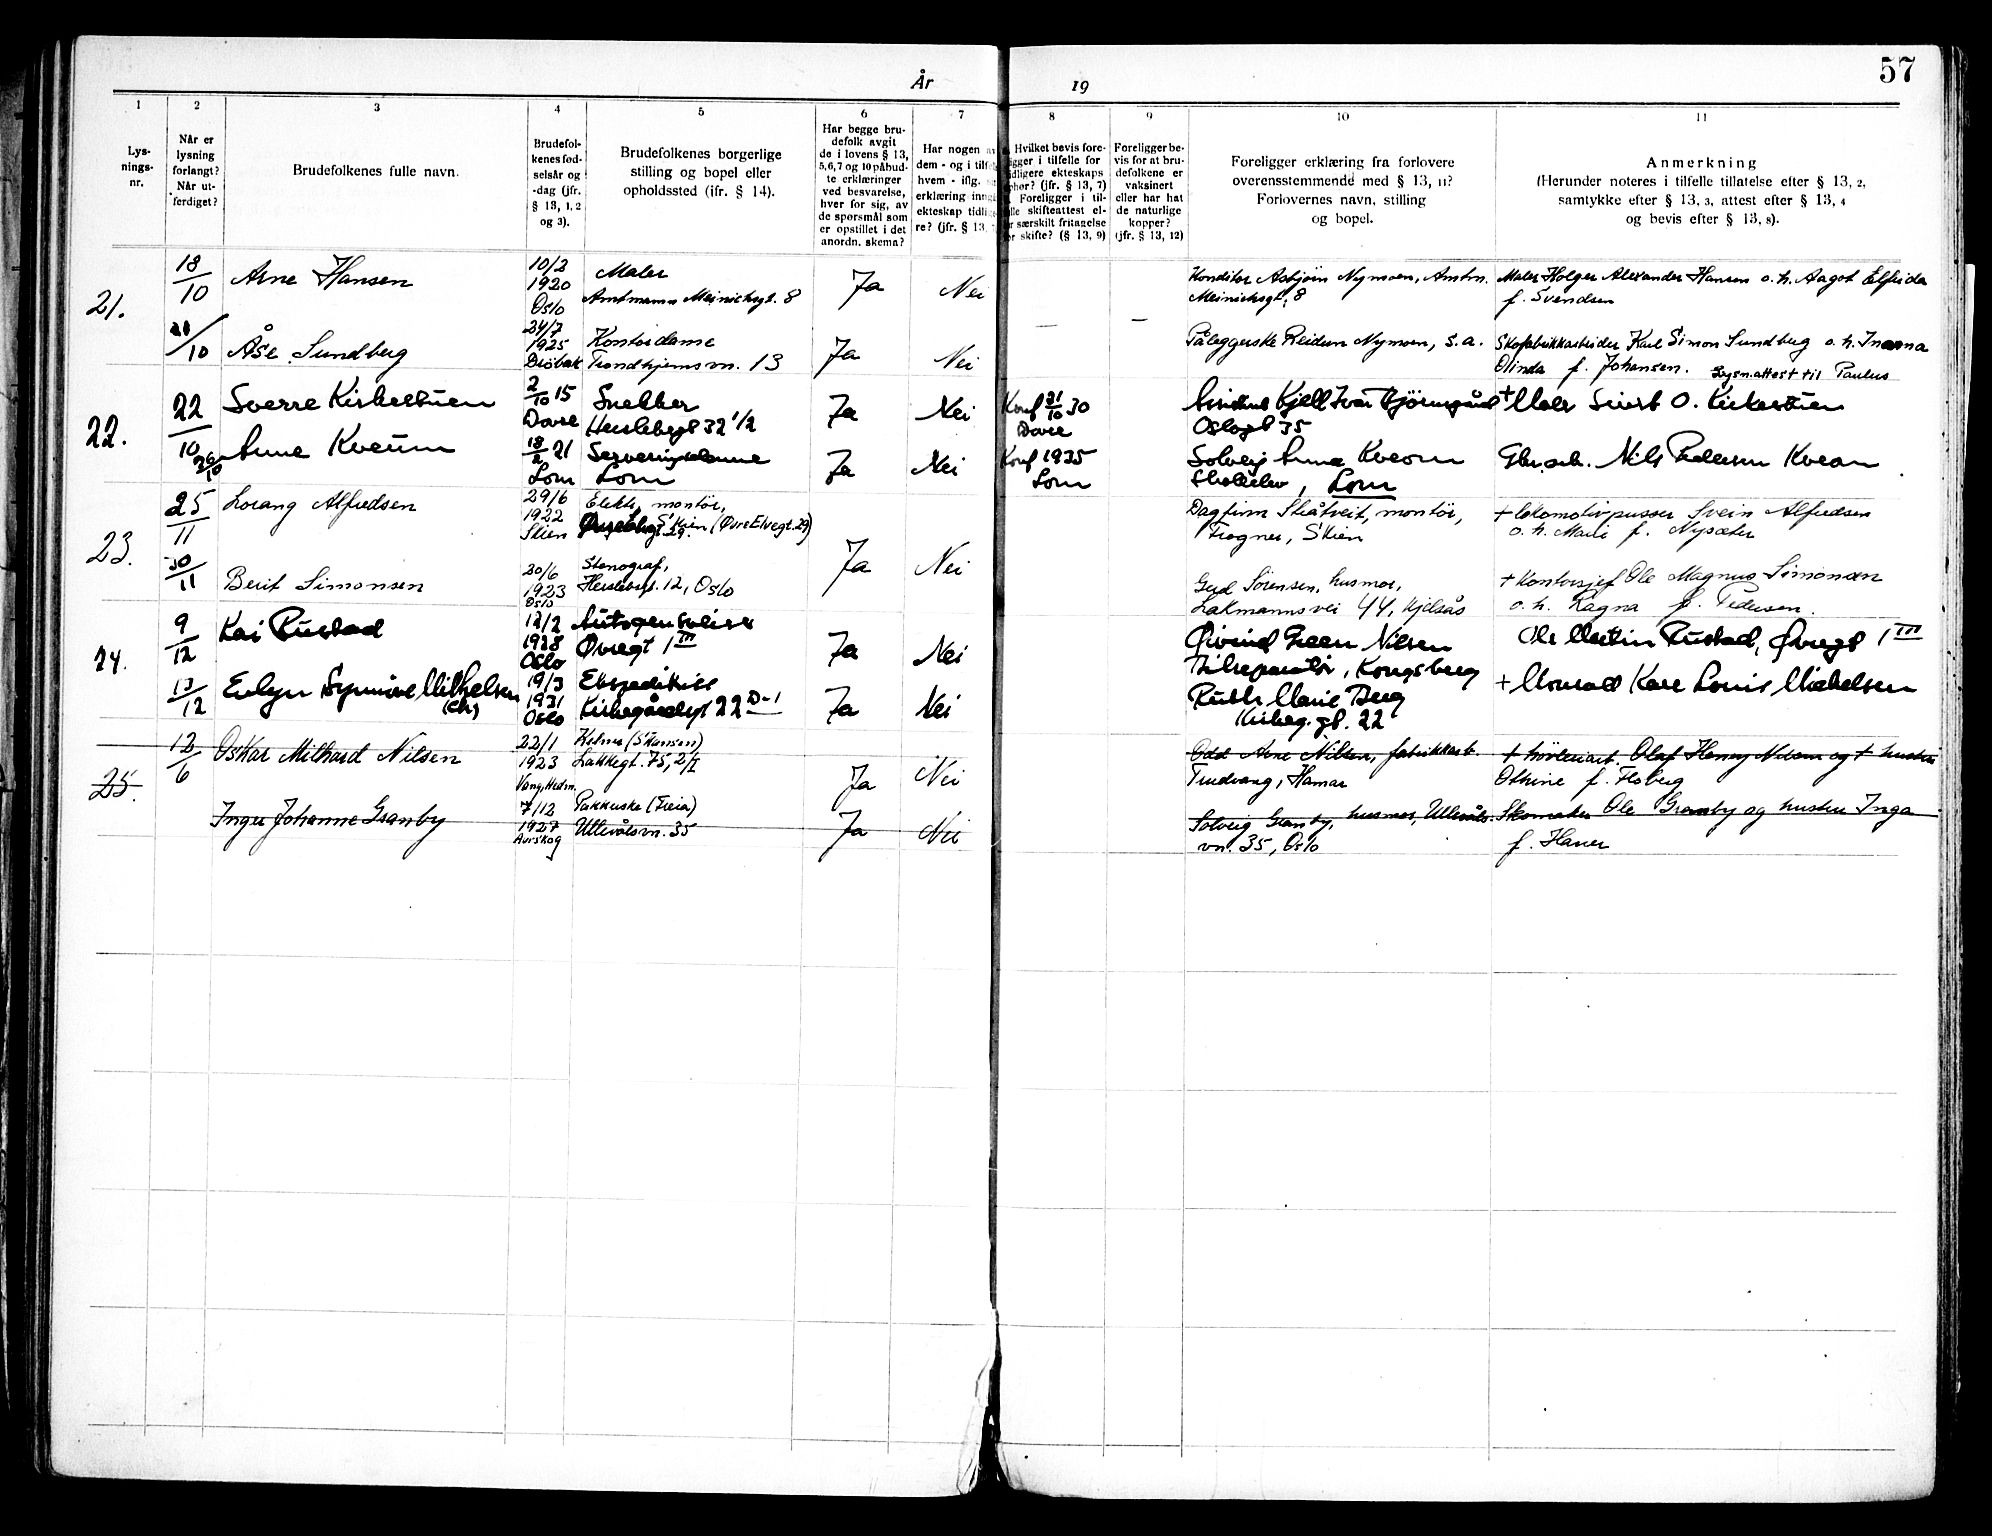 57
År
19
1
2
3
4
5
6
7
8
9
10
11
Lys-
nings-
nr.
Når er
lysning
forlangt?
Når ut-
ferdiget?
Brudefolkenes fulle navn.
Brudefol-
kenes fød-
selsår og
-dag (jfr.
§ 13, 1, 2
og 3).
Brudefolkenes borgerlige
stilling og bopel eller
opholdssted (jfr. § 14).
Har begge bru-
defolk avgit
de i lovens § 13,
5, 6, 7 og 10 påbud-
te erklæringer
ved besvarelse,
hver for sig, av
de spørsmål som
er opstillet i det
anordn. skema?
Har nogen av
dem - og i tilfe
hvem - iflg.
erklæring inng
ekteskap tidlig
re? (jfr. § 13,
Hvilket bevis fore-
igger i tilfelle for
idligere ekteskaps
phør? (jfr. § 13, 7)
Foreligger i til-
lle skifteattest el-
r særskilt fritagelse
or skifte? (§ 13, 9)
Foreligger be-
vis for at bru-
defolkene er
vaksinert
eller har hat
de naturlige
kopper?
(jfr. § 13, 12)
Foreligger erklæring fra forlovere
overensstemmende med § 13, 11?
Forlovernes navn, stilling
og bopel.
Anmerkning
(Herunder noteres i tilfelle tillatelse efter § 13, 2,
samtykke efter § 13, 3, attest efter § 13, 4
og bevis efter § 13, 8).
21.
18/10
Arne Hansen
10/2
1920
Oslo
Maler
Amtmann Meinichsgt. 8
Ja
Nei
Konditor Asbjørn Nymoen, Amtm.
Meinichsgt. 8
Maler Holger Alexander Hansen o.h. Aagot Elfrida
f. Svendsen
/10
Åse Sundberg
24/7
1925
Drøbak
Kontordame
Trondhjemsvn. 13
Ja
Nei
—
—
Påleggerske Reidun Nymoen, s.a.
Skofabrikkarbeider Karl Simon Sundberg o.h. Inanna
Olinda f. Johansen. Lysn.attest til Paulus
22.
22/10
Sverre Kirkestuen
2/10 15
Dovre
Snekker
Herslebsgt 32 1/2
Ja
Nei
Konf 31/10 30
Dovre
Kjell Ivar Bjørnsgård
Oslogt 35
+ Maler Sivert O. Kirkestuen
26/10
Anne Kveum
18/2 21
Lom
Serveringsdame
Lom
Ja
Nei
Konf 1935
Lom
Solveig Anna Kveom
Skoleelev, Lom
Gbr. Nils Pedersen Kveom
23.
25/11
Lorang Alfredsen
29/6
1922
Skien
Elektr. montør,
Skien (Øvre Elvegt. 29)
Ja
Nei
Dagfinn Skåtveit, montør,
Frogner, Skien
+ lokomotivpusser Svein Alfredsen
o.h. Marie f. Nysæter
30/11
Berit Simonsen
20/6
1923
Oslo
Stenograf,
Herslebsgt. 12, Oslo
Gerd Sørensen, husmor,
Lakmannsvei 44, Kjelsås
+ Kontorsjef Ole Magnus Simonsen
o.h. Ragna f. Pedersen.
24.
9/12
Kai Rustad
12/2
1928
Oslo
Autogensveiser
Øvregt 1 III
Ja
Nei
Øivind Green Nilsen
Kongsberg
Ole Martin Rustad, Øvregt 1 III
13/12
Evlyn Synnøve Mithelsen
(ch)
19/3
1931
Oslo
Ekspeditrise
Kirkegårdsgt 22 D-1
Ja
Nei
Ruth Marie Berg
Kirkeg.gt. 22
+ Kåre Louis Michelsen
25.
12/6
Oskar Milhard Nilsen
22/1
1923
Vang, Hedm.
Kelner (Skansen)
Lakkegt. 75, 2/I
Ja
Nei
Odd Arne Nilsen, fabrikkarb.
Tindvang, Hamar
+ høvleriarb. Olaf Henry Nilsen og + hustru
Othine f. Floberg
Inger Johanne Granby
7/12
1927
Aurskog
Pakkerske (Freia)
Ullevålsvn. 35
Ja
Nei
Solveig Granby, husmor, Ullevåls-
vn. 35, Oslo
Skomaker Ole Granby og hustru Inga
f. Haner